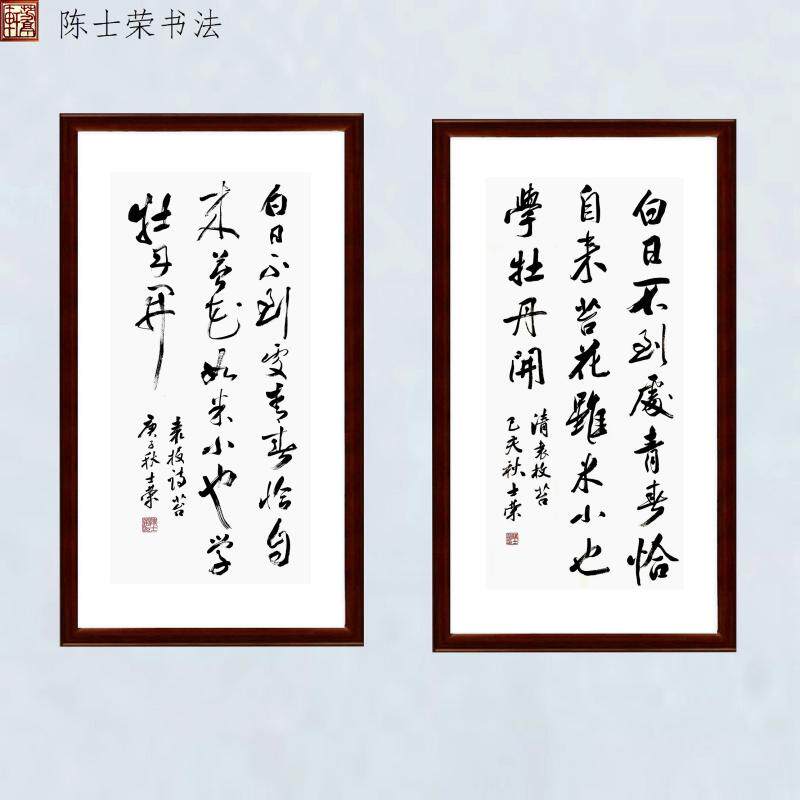 陈士荣书法
白日不到處青春恰自
来苔花如米小也学
牡丹开
袁枚诗苔
庚子秋士荣
白日不到處青春恰
自来苔花雖米小也
學牡丹開
清袁枚苔
己亥秋士荣